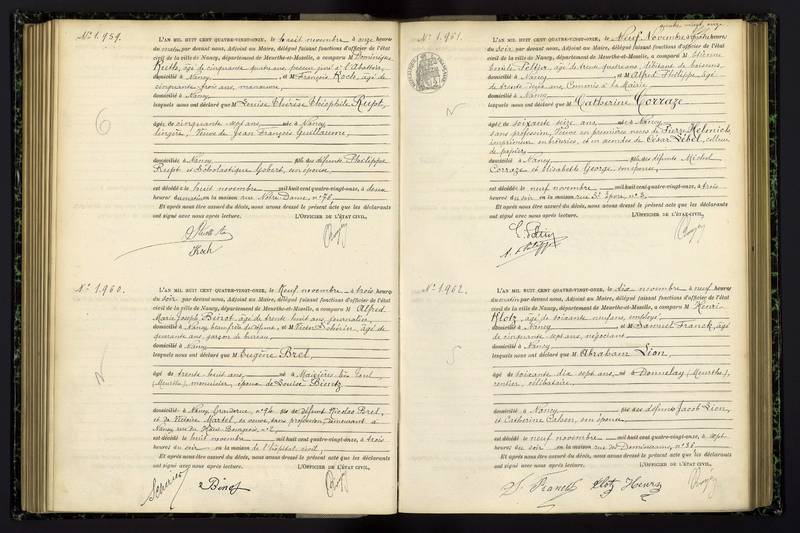 N° 1.959.
L'AN MIL HUIT CENT QUATRE-VINGT-ONZE, le huit novembre à onze heures
du matin par devant nous, Adjoint au Maire, délégué faisant fonctions d'officier de l'état
civil de la ville de Nancy, département de Meurthe-et-Moselle, a comparu M Dominique
âgé de cinquante quatre ans, peseur juré à l'Abattoir,
domicilié à Nancy et M François Koch, âgé de
cinquante trois ans, manœuvre,
domicilié à Nancy
lesquels nous ont déclaré que M Louise Thérèse Théophile Rupt,
âgée de cinquante sept ans, née à Nancy
lingère, Veuve de Jean François Guillaume,
domiciliée à Nancy fille des défunts Philippe
Rupt et Scholastique Gobert, son épouse,
est décédée le huit novembre mil huit cent quatre-vingt-onze, à deux
heures du matin en la maison rue Notre Dame, n° 76
Et après nous être assuré du décès, nous avons dressé le présent acte que les déclarants
ont signé avec nous après lecture. L'OFFICIER DE L'ÉTAT CIVIL,
Koch
N° 1.960.
L'AN MIL HUIT CENT QUATRE-VINGT-ONZE, le Neuf novembre à trois heures
du soir par devant nous, Adjoint au Maire, délégué faisant fonctions d'officier de l'état
civil de la ville de Nancy, département de Meurthe-et-Moselle, a comparu M Alfred
Marie Joseph Binot, âgé de trente huit ans, journalier,
domicilié à Nancy beau frère du défunt, et M Victor âgé de
quarante ans, garçon de bureau,
domicilié à Nancy
lesquels nous ont déclaré que M Eugène Bret,
âgé de trente huit ans, né à Maizières les Toul
(Meurthe), menuisier, époux de Louise Bientz
domicilié à Nancy, Grande rue, n° 94 fils de défunt Nicolas Bret,
et de Victoire Martel, sa veuve, sans profession, demeurant à
Nancy
est décédé le huit novembre mil huit cent quatre-vingt-onze, à trois
heures du soir en la maison de l'hôpital civil,
Et après nous être assuré du décès, nous avons dressé le présent acte que les déclarants
ont signé avec nous après lecture. L'OFFICIER DE L'ÉTAT CIVIL,
Binot
N° 1.961.
quatre vingt onze
L'AN MIL HUIT CENT QUATRE-VINGT-ONZE, le Neuf Novembre à quatre heures
du soir par devant nous, Adjoint au Maire, délégué faisant fonctions d'officier de l'état
civil de la ville de Nancy, département de Meurthe-et-Moselle, a comparu M Etienne
âgé de trente quatre ans, débitant de boissons,
domicilié à Nancy et M Alfred Philippe âgé
de trente ans, Commis à la Mairie
domicilié à Nancy
lesquels nous ont déclaré que M Catherine Corraze
âgée de soixante seize ans née à Nancy
sans profession, Veuve en premières noces de Pierre Helmich,
imprimeur et en secondes de César Lebel, colleur
de papiers,
domiciliée à Nancy fille des défunts Michel
Corraze et Elisabeth George, son épouse,
est décédée le neuf novembre mil huit cent quatre-vingt-onze, à trois
heures du soir, en la maison rue St Epvre, n° 3,
Et après nous être assuré du décès, nous avons dressé le présent acte que les déclarants
ont signé avec nous après lecture. L'OFFICIER DE L'ÉTAT-CIVIL,
A. Philippe
N° 1.962.
L'AN MIL HUIT CENT QUATRE-VINGT-ONZE, le dix novembre à neuf heures
du matin par devant nous, Adjoint au Maire, délégué faisant fonctions d'officier de l'état
civil de la ville de Nancy, département de Meurthe-et-Moselle, a comparu M Henri
Klotz, âgé de soixante neuf ans, employé,
domicilié à Nancy et M Samuel Franck, âgé
de cinquante sept ans, négociant
domicilié à Nancy
lesquels nous ont déclaré que M Abraham Lion,
âgé de soixante dix sept ans né à Donnelay (Meurthe),
rentier, célibataire,
domicilié à Nancy fils des défunts Jacob Lion,
et Catherine Cahen, son épouse,
est décédé le neuf novembre mil huit cent quatre-vingt-onze, à sept
heures du soir en la maison rue des Dominicains, n° 36
Et après nous être assuré du décès, nous avons dressé le présent acte que les déclarants
ont signé avec nous après lecture. L'OFFICIER DE L'ÉTAT CIVIL,
S. Franck Klotz Henry